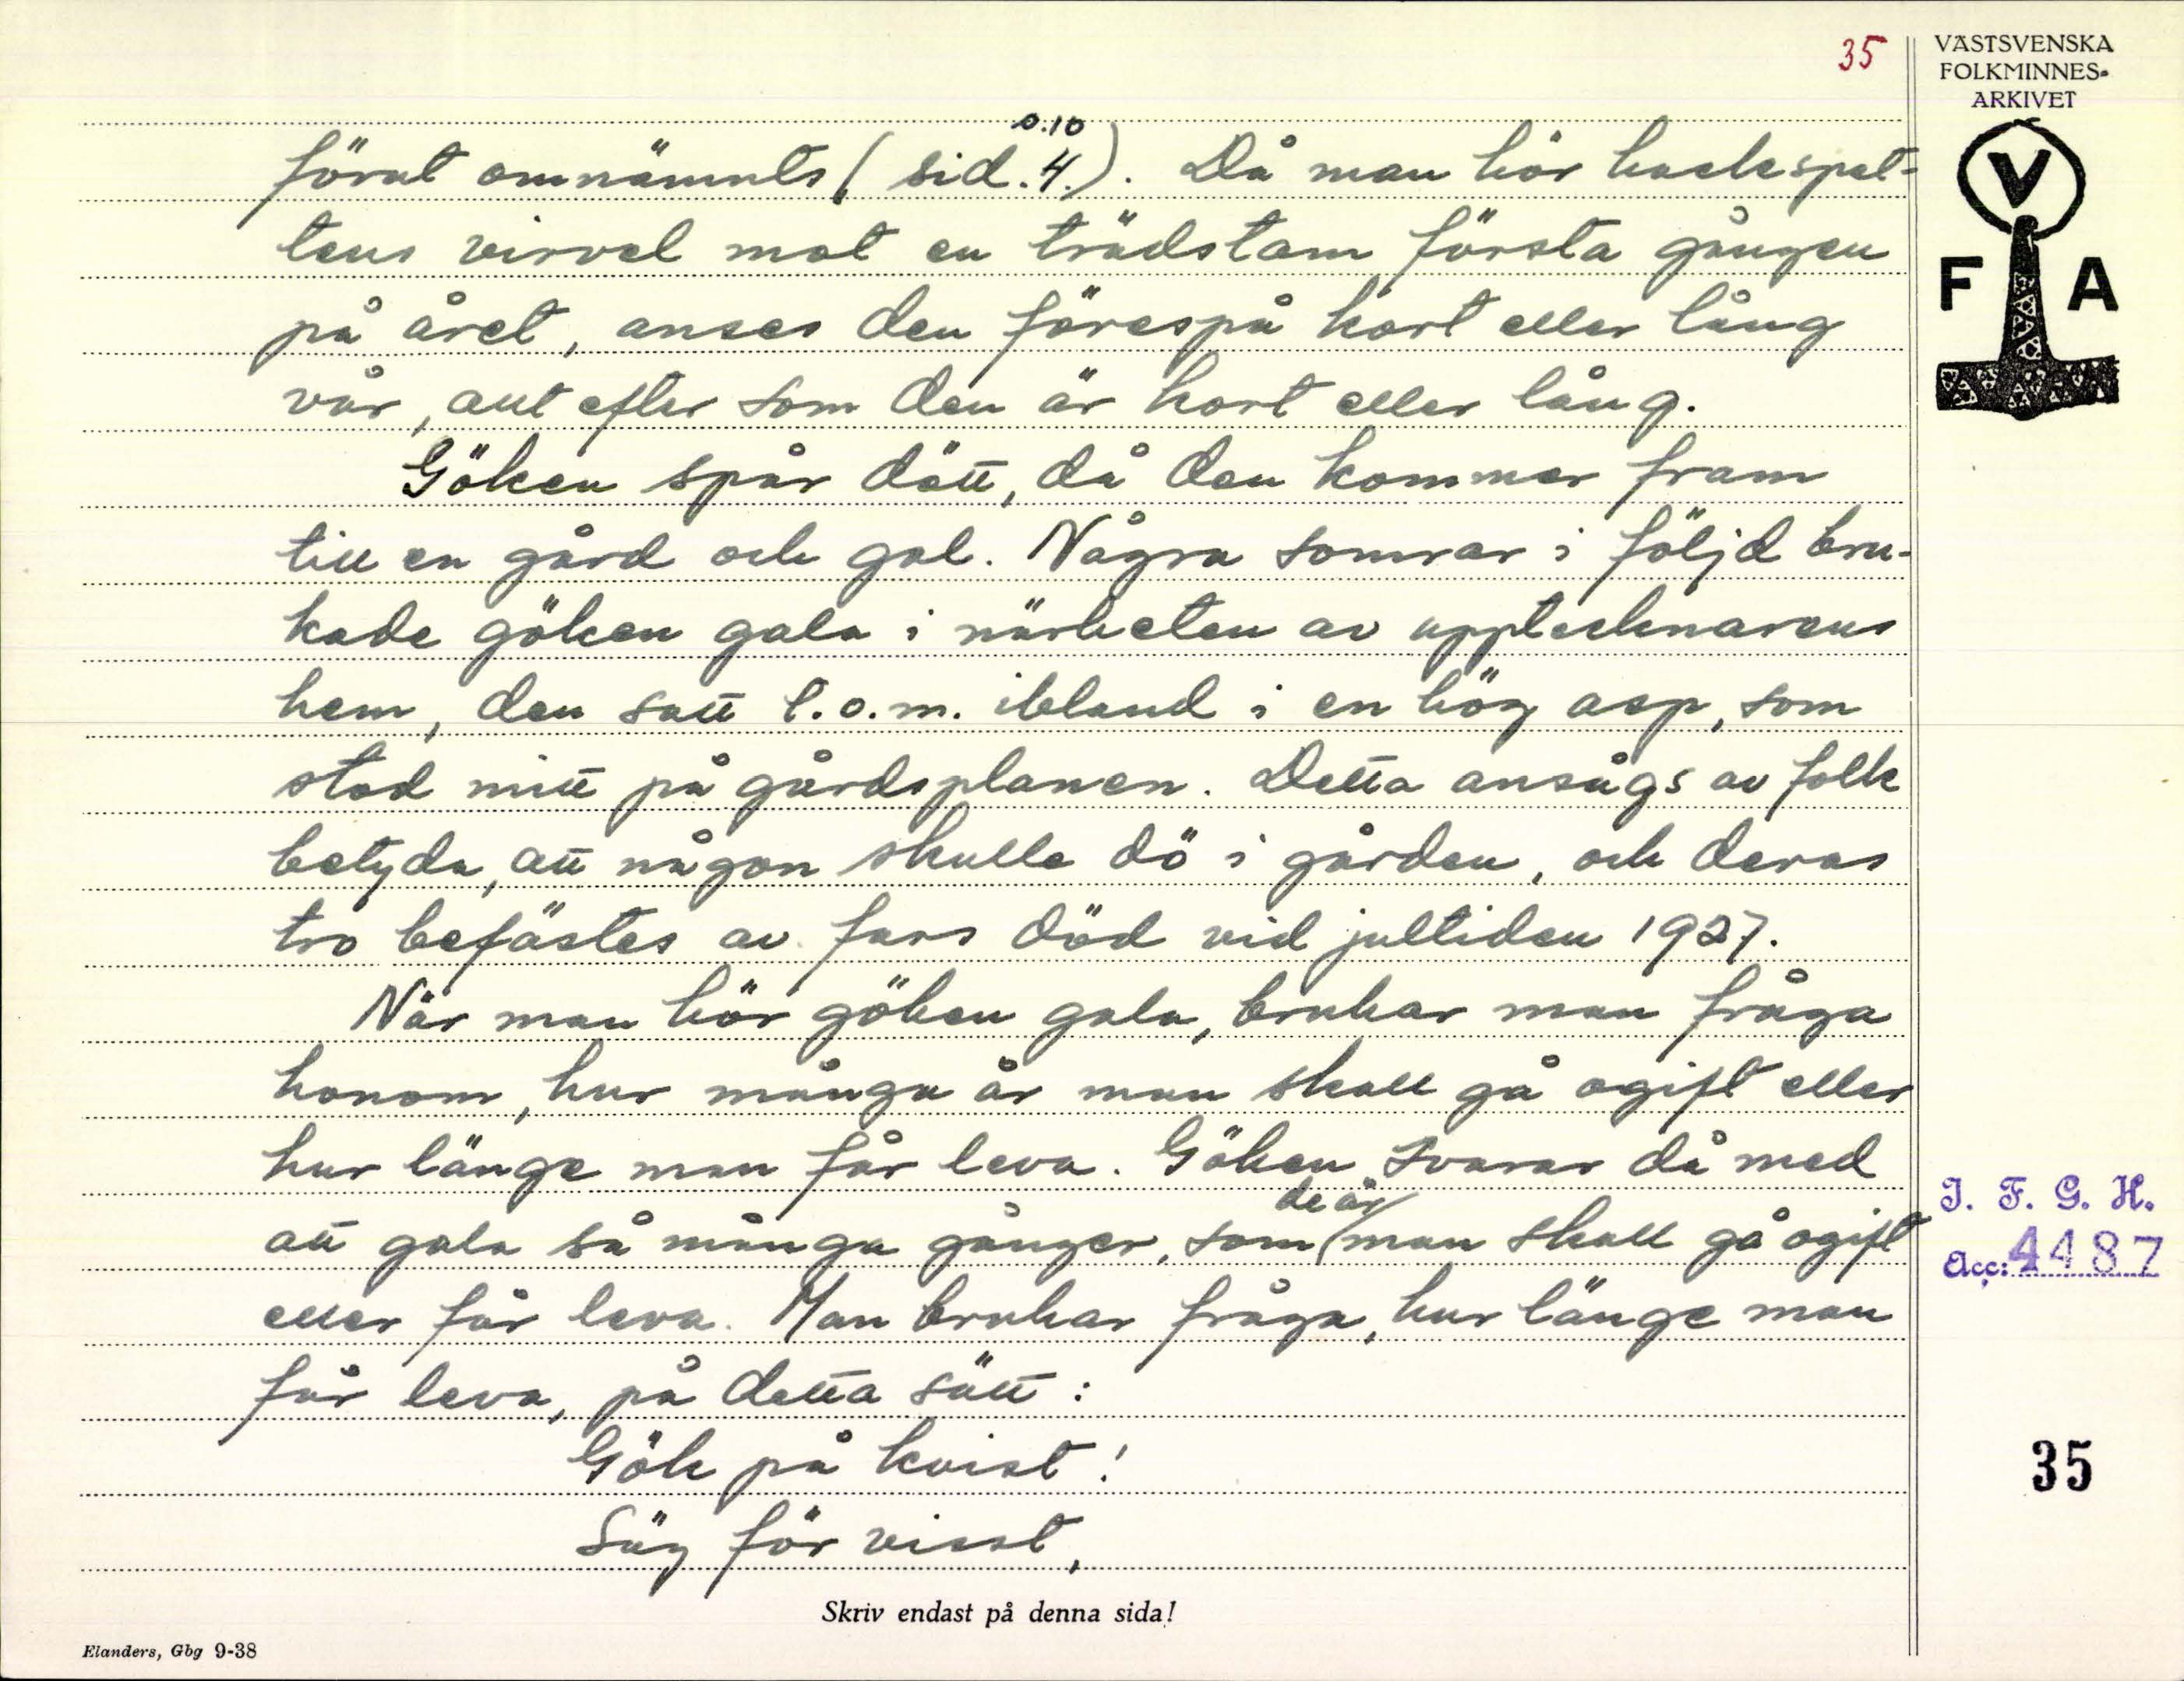 35
VÄSTSVENSKA
FOLKMINNES-
ARKIVET
V
F A
s.10
förut omnämnts (sid. 4.). Då man hör hackspet-
tens virvel mot en trädstam första gången
på året, anses den förespå kort eller lång
vår, allt efter som den är kort eller lång.
Göken spår dött, då den kommer fram
till en gård och gal. Några somrar i följd bru-
kade göken gala i närheten av upptecknarens
hem, den satt t.o.m. ibland i en hög asp, som
stod mitt på gårdsplanen. Detta ansågs av folk
betyda, att någon skulle dö i gården, och deras
tro befästes av fars död vid jultiden 1927.
När man hör göken gala, brukar man fråga
honom, hur många år man skall gå ogift eller
hur länge man får leva. Göken svarar då med
de år
att gala så många gånger, som man skall gå ogift
eller får leva. Man brukar fråga, hur länge man
får leva, på detta sätt:
Gök på kvist!
Säg för visst,
I. F. G. H.
Acc: 4487
35
Skriv endast på denna sida!
Elanders, Gbg 9-38